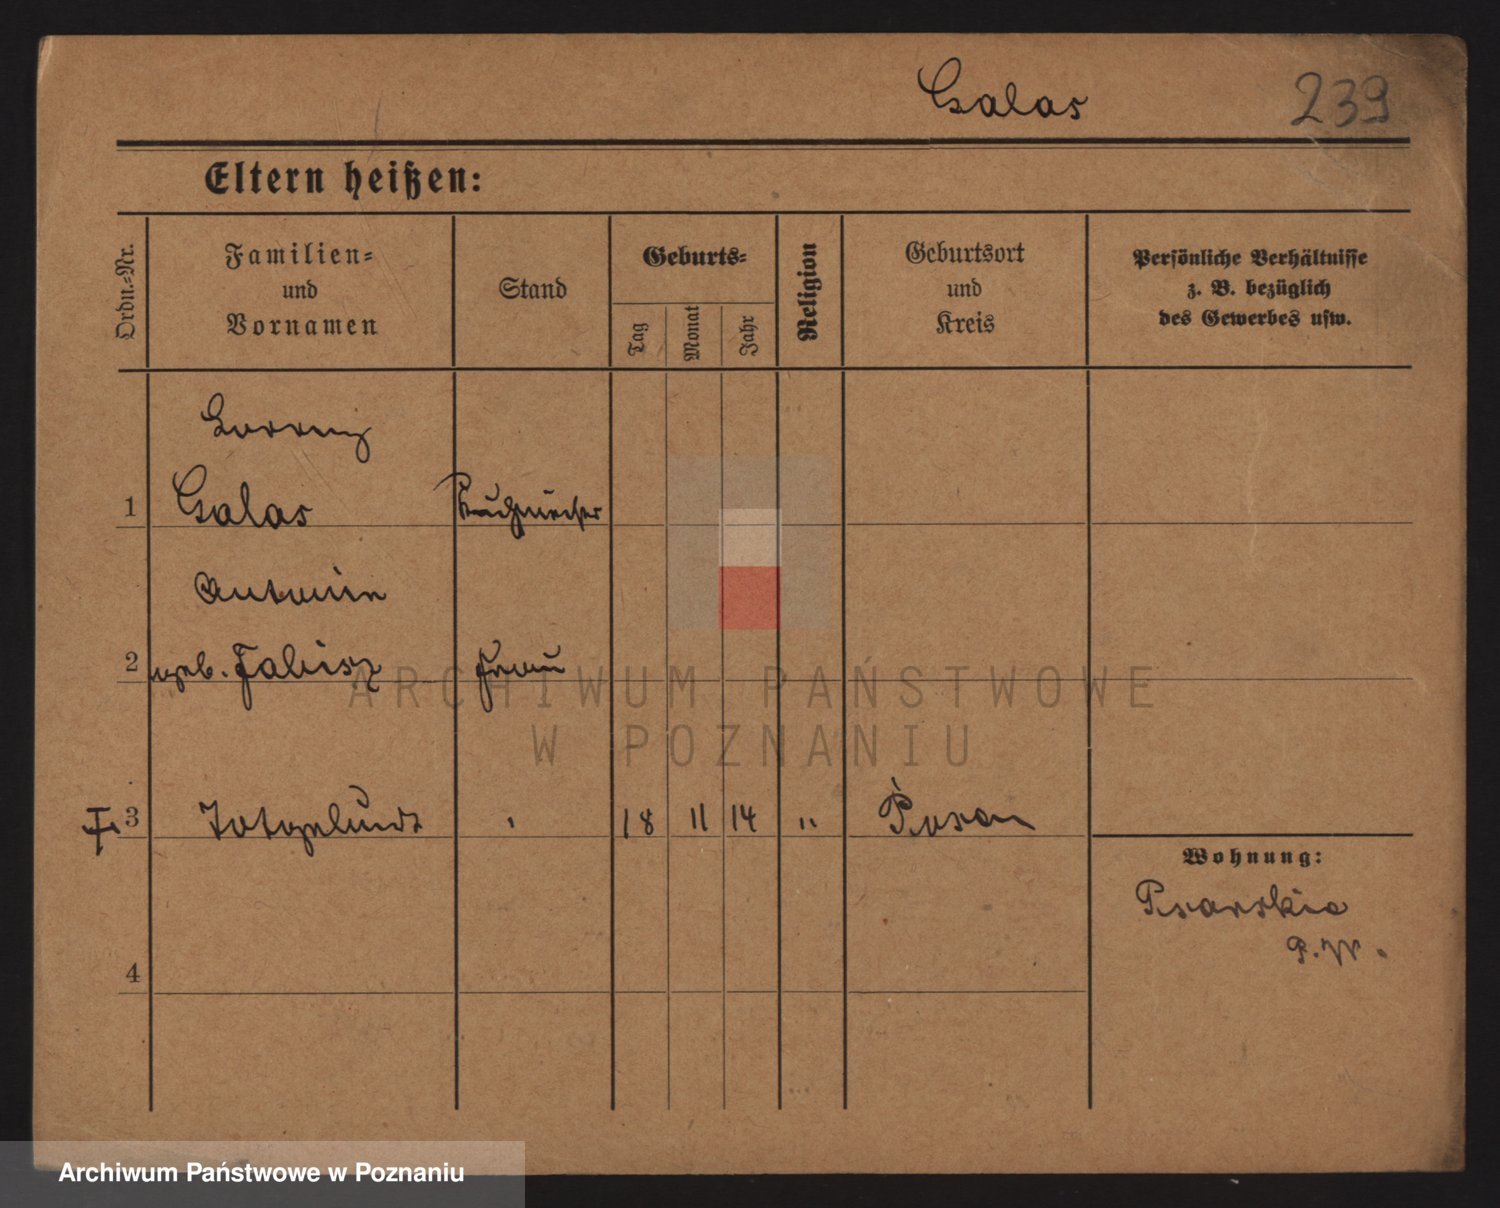 Galas
239
Eltern heißen:
Ordn.-Nr.
Familien-
und
Vornamen
Stand
Geburts-
Tag
Monat
Jahr
Religion
Geburtsort
und
Kreis
Persönliche Verhältnisse
z. B. bezüglich
des Gewerbes usw.
Lorenz
1 Galas
Antonie
2 geb. Fabisz Frau
3 Totgeburt 18 11 14 " Posen
Wohnung:
Psarskie
P. W.
4
ARCHIWUM PAŃSTWOWE
W POZNANIU
Archiwum Państwowe w Poznaniu